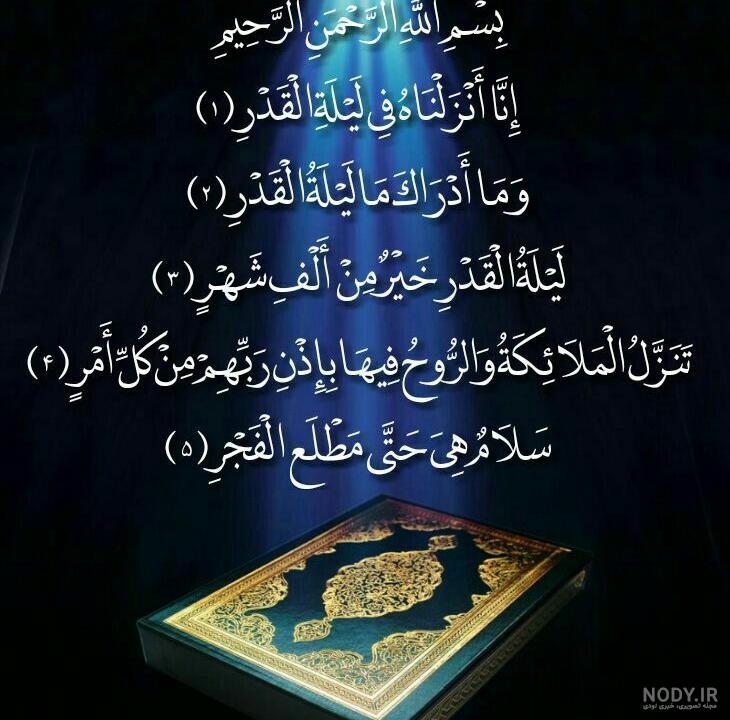 بِسْمِ اللَّهِ الرَّحْمَنِ الرَّحِيمِ
إِنَّا أَنْزَلْنَاهُ فِي لَيْلَةِ الْقَدْرِ (۱)
وَمَا أَدْرَاكَ مَا لَيْلَةُ الْقَدْرِ (۲)
لَيْلَةُ الْقَدْرِ خَيْرٌ مِنْ أَلْفِ شَهْرٍ (۳)
تَنَزَّلُ الْمَلَائِكَةُ وَالرُّوحُ فِيهَا بِإِذْنِ رَبِّهِمْ مِنْ كُلِّ أَمْرٍ (۴)
سَلَامٌ هِيَ حَتَّى مَطْلَعِ الْفَجْرِ (۵)
NODY.IR
مجله تصویری، خبری نودی